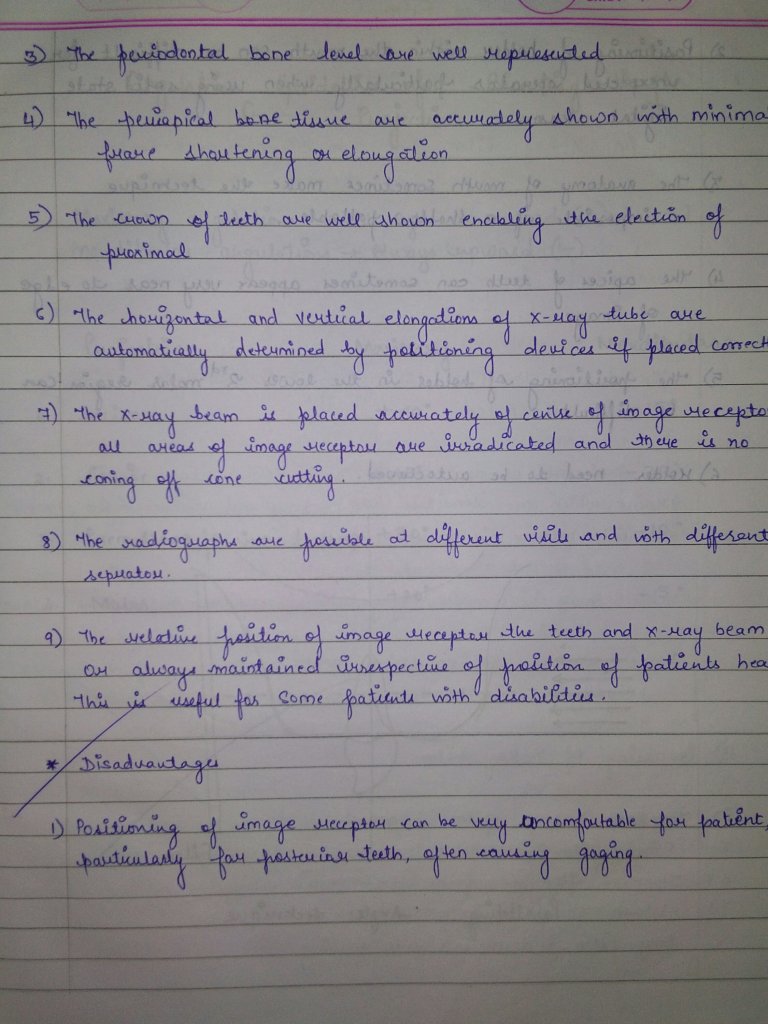 3) The periodontal bone level are well represented
4) The periapical bone tissue are accurately shown with minima
frare shortening or elougation
5) The crown of teeth are well shown enabling the election of
proximal
6) The horizontal and vertical elongations of x-ray tube are
automatically determined by positioning devices if placed correct
7) The x-ray beam is placed accurately of centre of image recepto
all areas of image receptor are irradicated and there is no
coning off cone cutting.
8) The radiographs are possible at different visits and with different
seprator.
9) The relative position of image receptor the teeth and x-ray beam
or always maintained irrespective of position of patients hea
This is useful for some patients with disabilities.
* Disadvantages
1) Positioning of image receptor can be very uncomfortable for patient,
particularly for posterior teeth, often causing gaging.